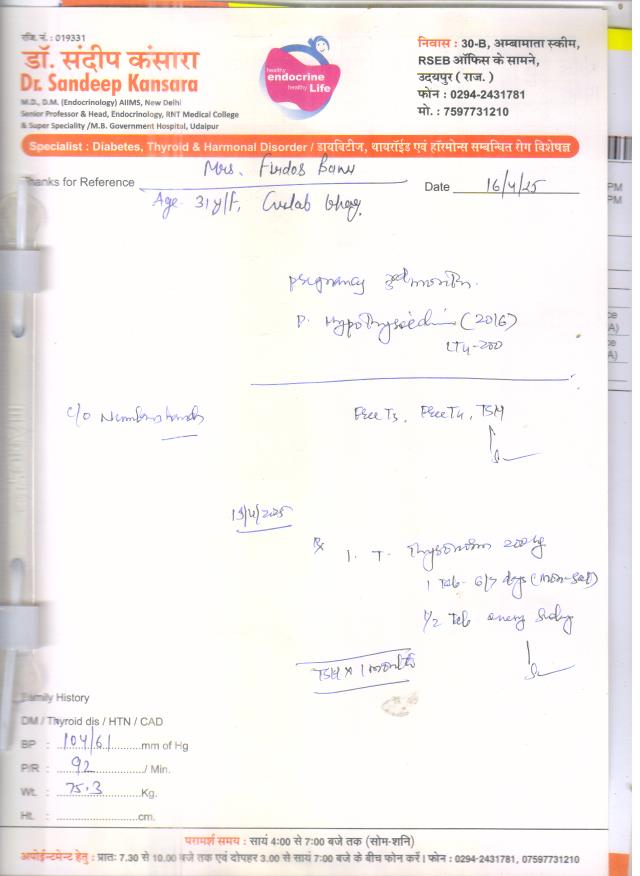 रजि. नं. : 019331
डॉ. संदीप कंसारा
Dr. Sandeep Kansara
M.D., D.M. (Endocrinology) AIIMS, New Delhi
Senior Professor & Head, Endocrinology, RNT Medical College
& Super Speciality /M.B. Government Hospital, Udaipur
healthy
endocrine
healthy Life
निवास : 30-B, अम्बामाता स्कीम,
RSEB ऑफिस के सामने,
उदयपुर ( राज. )
फोन : 0294-2431781
मो. : 7597731210
Specialist : Diabetes, Thyroid & Harmonal Disorder / डायबिटीज, थायरॉईड एवं हॉरमोन्स सम्बन्धित रोग विशेषज्ञ
Thanks for Reference Mrs. Firdos Banu Date 16/4/25
Age 31y/f,
pregnancy 3rd month.
Hypothyroidism (2016)
LT4-200
c/o Numbness hands
Free T3, Free T4, TSH
℞ 1. T. Thyronorm 200 ug
1 Tab - 6/7 days (Mon-Sat)
1/2 Tab every Sunday
TSH x 1 month
Family History
DM / Thyroid dis / HTN / CAD
BP : 104/61 mm of Hg
P/R : 92 / Min.
Wt. : 75.3 Kg.
Ht. : cm.
परामर्श समय : सायं 4:00 से 7:00 बजे तक (सोम-शनि)
अपोईन्टमेन्ट हेतु : प्रातः 7.30 से 10.00 बजे तक एवं दोपहर 3.00 से सायं 7:00 बजे के बीच फोन करें। फोन : 0294-2431781, 07597731210